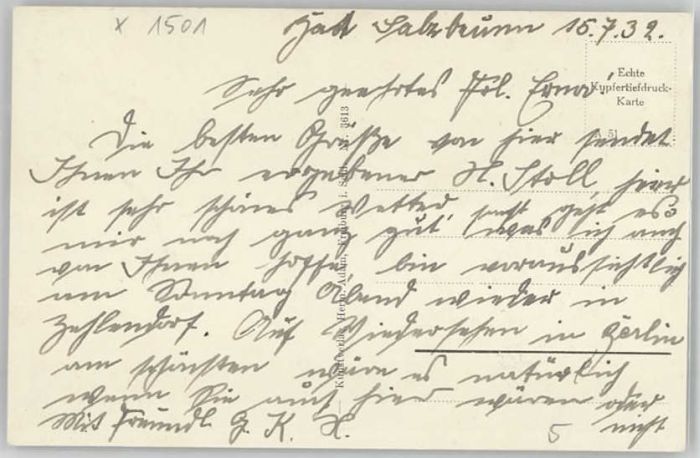 x 1501
Bad Salzbrunn 15.7.32.
Sehr geehrtes Frl. Erna!
Echte
Kupfertiefdruck-
Karte
Die besten Grüße von hier sendet
Ihnen Ihr ergebener H. Stoll, hier
ist sehr schönes Wetter sonst geht es
mir noch ganz gut was ich auch
von Ihnen hoffe, bin voraussichtlich
am Sonntag Abend wieder in
Zehlendorf. Auf Wiedersehen in Berlin
am schönsten wäre es natürlich
wenn Sie auch hier wären oder
nicht
Mit freundl. G. K. H.
5